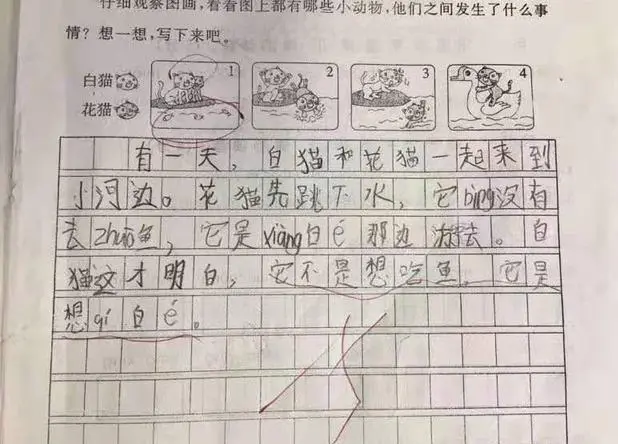 仔细观察图画,看看图上都有哪些小动物,他们之间发生了什么事
情？想一想,写下来吧。
白猫
花猫
1 2 3 4
有一天，白猫和花猫一起来到
小河边。花猫先跳下水，它bìng没有
去zhuō鱼，它是xiàng白é那边游去。白
猫这才明白，它不是想吃鱼，它是
想qí白é。